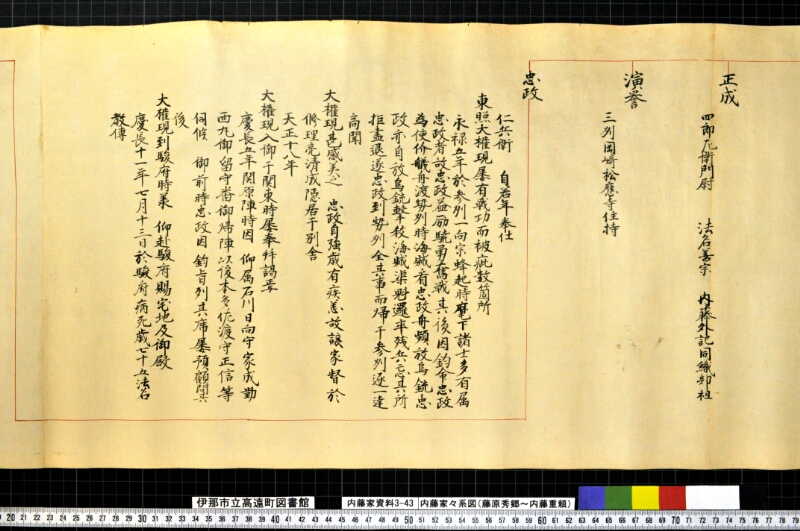 正成
四郎左衛門尉　法名善宗　内藤外記同織部祖
演誉
三列岡崎松應寺住持
忠政
仁兵衛　自若年奉仕
東照大權現屡有戦功而被疵数箇所
永禄五年於参列一向宗蜂起時麾下諸士多有属
忠政者故忠政益励驍勇奮戦其後因釣命忠政
為使价艤舟渡勢列時海賊有忠政舟頻放鳥銃忠
政亦自放鳥銃撃殺海賊渠魁邏卒残兵忘其所
拒盡退逐忠政到勢列全其事而帰于参列逐一達
高聞
大權現甚感美之　忠政自強歳有疾恙故譲家督於
修理亮清成隠居于別舎
天正十八年
大權現入御于関東時屡奉拝謁矣
慶長五年関原陣時因　仰属石川日向守家成勤
西丸御留守番御帰陣以後本多佐渡守正信等
伺候　御前時忠政因　釣旨列其席屡預顧問其
後
大權現到駿府時蒙　仰赴駿府賜宅地及御殿
慶長十一年七月十三日於駿府病死歳七十五法名
教傳
伊那市立高遠町図書館
内藤家資料3-43　内藤家々系図(藤原秀郷～内藤重頼)